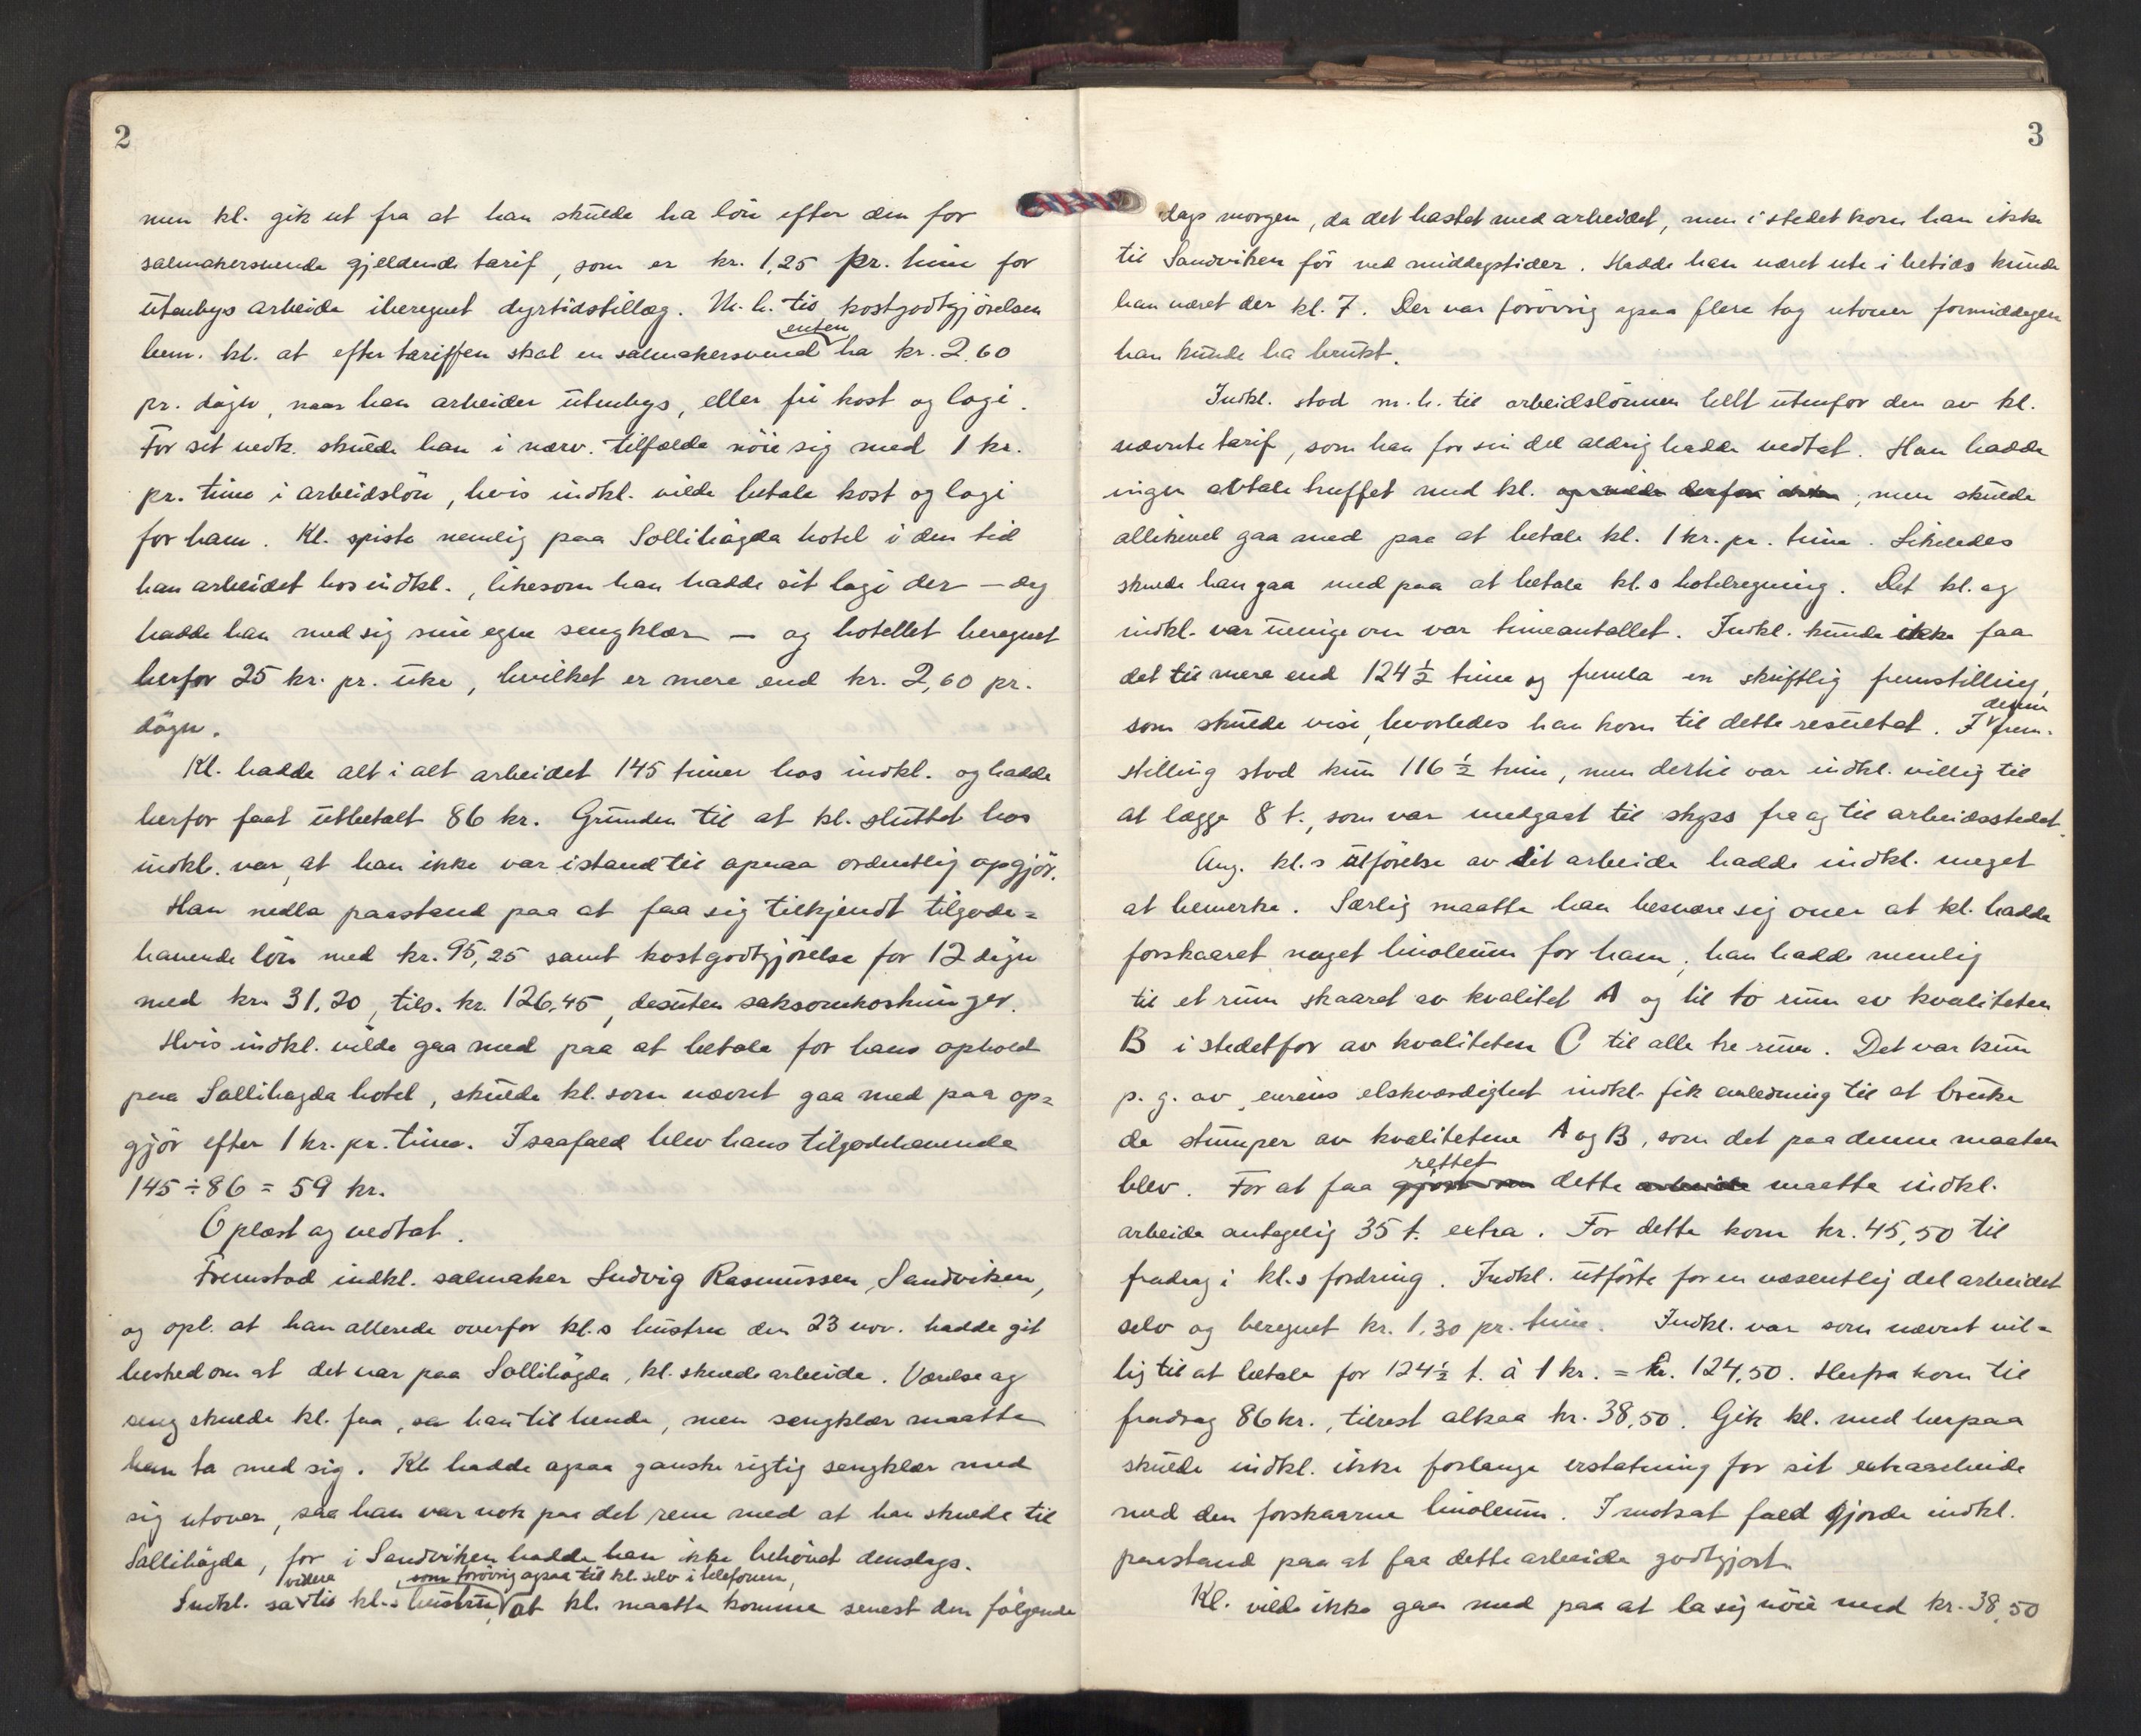 2
men kl. gik ut fra at han skulde ha lön efter den for
salmakersvende gjeldende tarif, som er kr. 1,25 pr. time for
utenbys arbeide iberegnet dyrtidstillæg. M.h. til kostgodtgjörelsen
enten
bem. kl. at efter tariffen skal en salmakersvend ha kr. 2.60
pr. dögn, naar han arbeider utenbys, eller fri kost og logi.
For sit vedk. skulde han i nærv. tilfælde nöie sig med 1 kr.
pr. time i arbeidslön, hvis indkl. vilde betale kost og logi
for ham. Kl. spiste nemlig paa Sollihögda hotel i den tid
han arbeidet hos indkl., likesom han hadde sit logi der — dog
hadde han med sig sine egne sengklær — og hotellet beregnet
herfor 25 kr. pr. uke, hvilket er mere end kr. 2,60 pr.
dögn.
Kl. hadde alt i alt arbeidet 145 timer hos indkl. og hadde
herfor faat utbetalt 86 kr. Grunden til at kl. sluttet hos
indkl. var, at han ikke var istand til opnaa ordentlig opgjör.
Han nedla paastand paa at faa sig tilkjendt tilgode=
havende lön med kr. 95,25 samt kostgodtgjörelse for 12 dögn
med kr. 31,20, tils. kr. 126,45, desuten saksomkostninger.
Hvis indkl. vilde gaa med paa at betale for hans ophold
paa Sollihøgda hotel, skulde kl. som nævnt gaa med paa op=
gjör efter 1 kr. pr. time. I saafald blev hans tilgodehavende
145 ÷ 86 = 59 kr.
Oplæst og vedtat.
Fremstod indkl. salmaker Ludvig Rasmussen, Sandviken,
og opl. at han allerede overfor kl.s hustru den 23 nov. hadde git
besked om at det var paa Sollihögda, kl. skulde arbeide. Værelse og
seng skulde kl. faa, sa han til hende, men sengklær maatte
han ta med sig. Kl. hadde ogsaa ganske rigtig sengklær med
sig utover, saa han var nok paa det rene med at han skulde til
Sollihögda, for i Sandviken hadde han ikke behövet denslags.
videre , som forövrig ogsaa til kl. selv i telefonen,
Indkl. sa til kl.s hustru, at kl. maatte komme senest den fölgende
3
dags morgen, da det hastet med arbeidet, men i stedet kom han ikke
til Sandviken för ved middagstider. Hadde han været ute i betids kunde
han været der kl. 7. Der var forövrig ogsaa flere tog utover formiddagen
han kunde ha brukt.
Indkl. stod m.h. til arbeidslönnen helt utenfor den av kl.
nævnte tarif, som han for sin del aldrig hadde vedtat. Han hadde
ingen avtale truffet med kl. og vilde derfor ikke, men skulde
allikevel gaa med paa at betale kl. 1 kr. pr. time. Likeledes
skulde han gaa med paa at betale kl.s hotelregning. Det kl. og
indkl. var uenige om var timeantallet. Indkl. kunde ikke faa
det til mere end 124 ½ time og fremla en skriftlig fremstilling,
denne
som skulde vise, hvorledes han kom til dette resultat. I frem-
stilling stod kun 116 ½ time, men dertil var indkl. villig til
at lægge 8 t., som var medgaat til skyss fra og til arbeidsstedet.
Ang. kl.s utförelse av sit arbeide hadde indkl. meget
at bemerke. Særlig maatte han besvære sig over at kl. hadde
forskaaret noget linoleum for ham; han hadde nemlig
til et rum skaaret av kvalitet A og til to rum av kvaliteten
B i stedetfor av kvaliteten C til alle tre rum. Det var kun
p. g. av eierens elskværdighet indkl. fik anledning til at bruke
de stumper av kvalitetene A og B, som det paa denne maaten
rettet
blev. For at faa gjort om dette arbeide maatte indkl.
arbeide antagelig 35 t. extra. For dette kom kr. 45,50 til
fradrag i kl.s fordring. Indkl. utförte for en væsentlig del arbeidet
selv og beregnet kr. 1,30 pr. time. Indkl. var som nævnt vil=
lig til at betale for 124½ t. à 1 kr. = kr. 124,50. Herfra kom til
fradrag 86 kr., tilrest altsaa kr. 38,50. Gik kl. med herpaa
skulde indkl. ikke forlange erstatning for sit extraarbeide
med den forskaarne linoleum. I motsat fald gjorde indkl.
paastand paa at faa dette arbeide godtgjort.
Kl. vilde ikke gaa med paa at la sig nöie med kr. 38,50